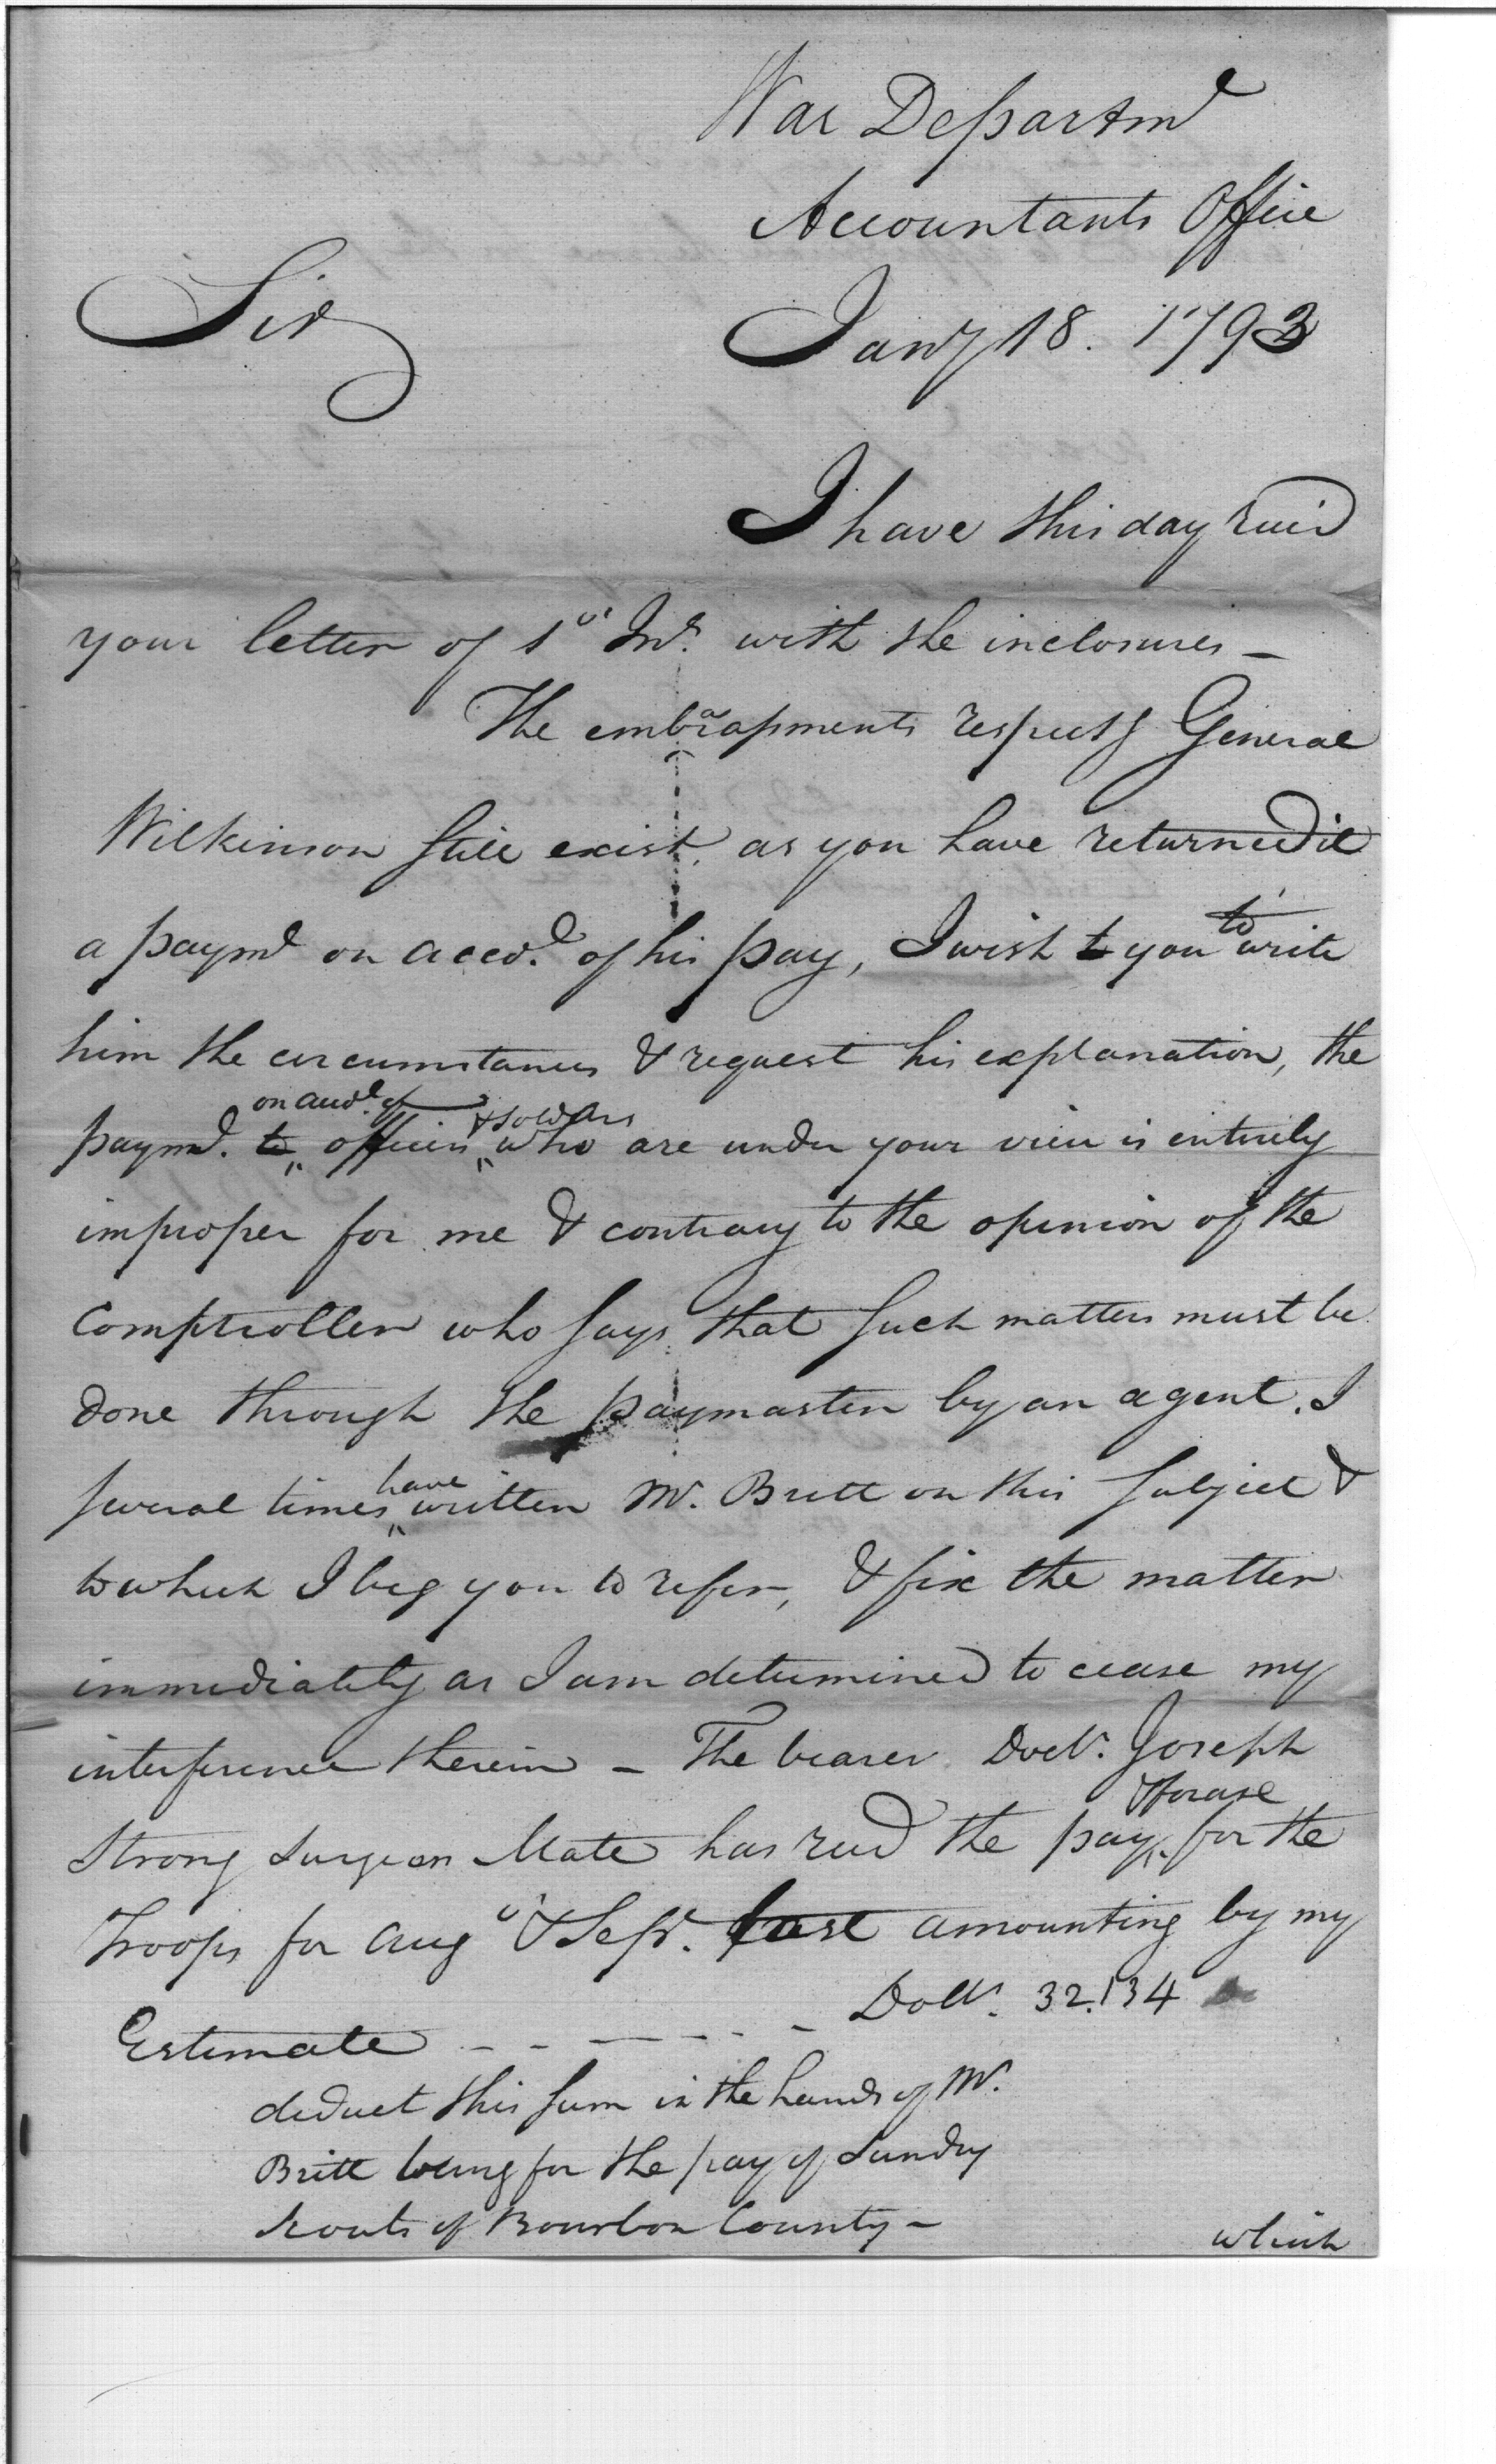 War Departmt
Accountants Office
Sir
Jany 18. 1793
I have this day recd
your letter of 1st Inst. with the inclosures —
The embarassments respectg General
Wilkinson still exist, as you have returned it
a paymt on accot. of his pay, I wish you to write
him the circumstances & request his explanation, the
on accot. of & soldiers
paymt. to officers who are under your view is entirely
improper for me & contrary to the opinion of the
Comptroller who says that such matters must be
done through the paymaster by an agent. I
have
several times written Mr. Britt on this subject &
to which I beg you to refer, & fix the matter
immediately as I am determined to cease my
interference therein — The bearer Doctr. Joseph
& forage
Strong Surgeon Mate has recd the pay for the
Troops for Augt & Sepr. last amounting by my
Estimate - - — - - - Dollrs. 32.134
deduct this sum in the hands of Mr.
Britt being for the pay of Sundry
scouts of Bourbon County —
which